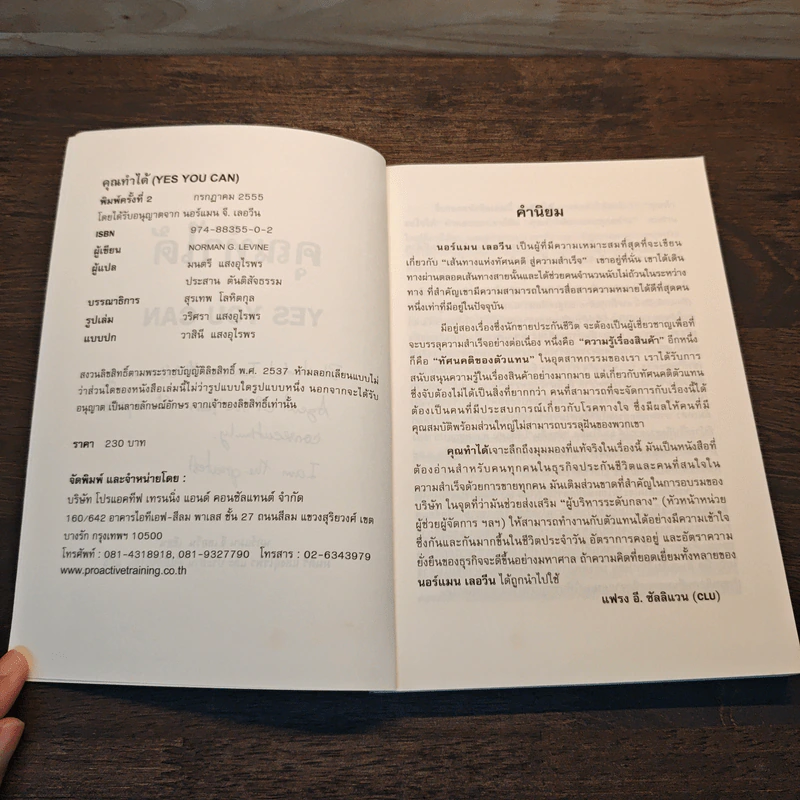 คุณทำได้ (YES YOU CAN)
พิมพ์ครั้งที่ 2 กรกฎาคม 2555
โดยได้รับอนุญาตจาก นอร์แมน จี. เลอวีน
ISBN 974-88355-0-2
ผู้เขียน NORMAN G. LEVINE
ผู้แปล มนตรี แสงอุไรพร
ประสาน ตันติสัจธรรม
บรรณาธิการ สุรเทพ โลหิตกุล
รูปเล่ม วริศรา แสงอุไรพร
แบบปก วาสินี แสงอุไรพร
สงวนลิขสิทธิ์ตามพระราชบัญญัติลิขสิทธิ์ พ.ศ. 2537 ห้ามลอกเลียนแบบไม่
ว่าส่วนใดของหนังสือเล่มนี้ไม่ว่ารูปแบบใดรูปแบบหนึ่ง นอกจากจะได้รับ
อนุญาต เป็นลายลักษณ์อักษร จากเจ้าของลิขสิทธิ์เท่านั้น
ราคา 230 บาท
จัดพิมพ์ และจำหน่ายโดย :
บริษัท โปรแอคทีฟ เทรนนิ่ง แอนด์ คอนซัลแทนต์ จำกัด
160/642 อาคารไอทีเอฟ-สีลม พาเลส ชั้น 27 ถนนสีลม แขวงสุริยวงศ์ เขต
บางรัก กรุงเทพฯ 10500
โทรศัพท์ : 081-4318918, 081-9327790 โทรสาร : 02-6343979
www.proactivetraining.co.th
คำนิยม
นอร์แมน เลอวีน เป็นผู้ที่มีความเหมาะสมที่สุดที่จะเขียน
เกี่ยวกับ "เส้นทางแห่งทัศนคติ สู่ความสำเร็จ" เขาอยู่ที่นั่น เขาได้เดิน
ทางผ่านตลอดเส้นทางสายนั้นและได้ช่วยคนจำนวนนับไม่ถ้วนในระหว่าง
ทาง ที่สำคัญเขามีความสามารถในการสื่อสารความหมายได้ดีที่สุดคน
หนึ่งเท่าที่มีอยู่ในปัจจุบัน
มีอยู่สองเรื่องซึ่งนักขายประกันชีวิต จะต้องเป็นผู้เชี่ยวชาญเพื่อที่
จะบรรลุความสำเร็จอย่างต่อเนื่อง หนึ่งคือ "ความรู้เรื่องสินค้า" อีกหนึ่ง
ก็คือ "ทัศนคติของตัวแทน" ในอุตสาหกรรมของเรา เราได้รับการ
สนับสนุนความรู้ในเรื่องสินค้าอย่างมากมาย แต่เกี่ยวกับทัศนคติตัวแทน
ซึ่งจับต้องไม่ได้เป็นสิ่งที่ยากกว่า คนที่สามารถที่จะจัดการกับเรื่องนี้ได้
ต้องเป็นคนที่มีประสบการณ์เกี่ยวกับโรคทางใจ ซึ่งมีผลให้คนที่มี
คุณสมบัติพร้อมส่วนใหญ่ไม่สามารถบรรลุฝันของพวกเขา
คุณทำได้เจาะลึกถึงมุมมองที่แท้จริงในเรื่องนี้ มันเป็นหนังสือที่
ต้องอ่านสำหรับคนทุกคนในธุรกิจประกันชีวิตและคนที่สนใจใน
ความสำเร็จด้วยการขายทุกคน มันเติมส่วนขาดที่สำคัญในการอบรมของ
บริษัท ในจุดที่ว่ามันช่วยส่งเสริม "ผู้บริหารระดับกลาง" (หัวหน้าหน่วย
ผู้ช่วยผู้จัดการ ฯลฯ) ให้สามารถทำงานกับตัวแทนได้อย่างมีความเข้าใจ
ซึ่งกันและกันมากขึ้นในชีวิตประจำวัน อัตราการคงอยู่ และอัตราความ
ยั่งยืนของธุรกิจจะดีขึ้นอย่างมหาศาล ถ้าความคิดที่ยอดเยี่ยมทั้งหลายของ
นอร์แมน เลอวีน ได้ถูกนำไปใช้
แฟรง อี. ซัลลิแวน (CLU)